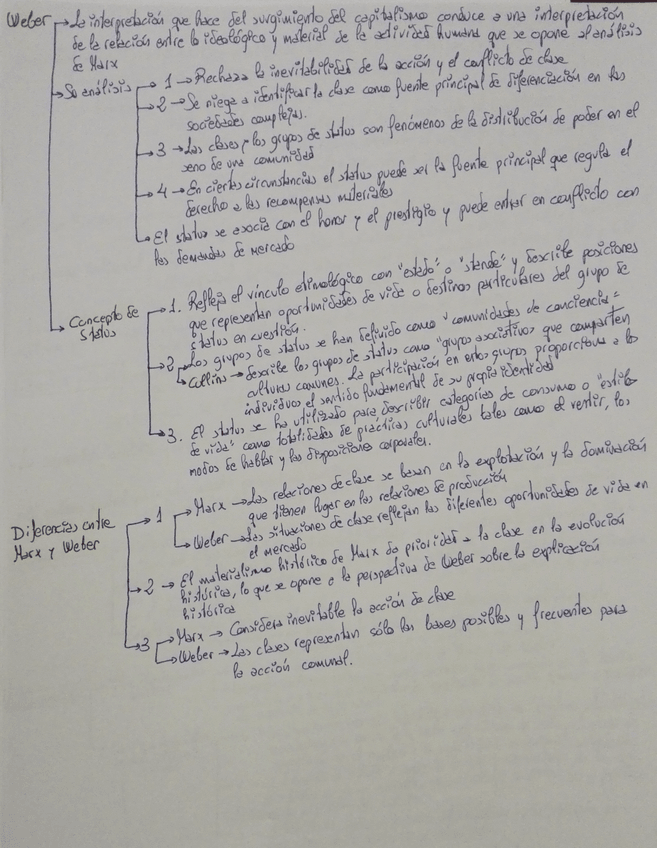 Weber → La interpretación que hace del surgimiento del capitalismo conduce a una interpretación
de la relación entre lo ideológico y material de la actividad humana que se opone al análisis
de Marx
→ Su análisis → 1 → Rechaza la inevitabilidad de la acción y el conflicto de clase
→ 2 → Se niega a identificar la clase como fuente principal de diferenciación en las
sociedades complejas.
→ 3 → Las clases y los grupos de status son fenómenos de la distribución de poder en el
seno de una comunidad
→ 4 → En ciertas circunstancias el status puede ser la fuente principal que regula el
derecho a las recompensas materiales
→ El status se asocia con el honor y el prestigio y puede entrar en conflicto con
las demandas de mercado
→ Concepto de
status
→ 1. Refleja el vínculo etimológico con "estado" o "stande" y describe posiciones
que representan oportunidades de vida o destinos particulares del grupo de
status en cuestión.
→ 2. Los grupos de status se han definido como "comunidades de conciencia"
→ Collins → describe los grupos de status como "grupos asociativos" que comparten
culturas comunes. La participación en estos grupos proporciona a los
individuos el sentido fundamental de su propia identidad
→ 3. El status se ha utilizado para describir categorías de consumo o "estilo
de vida" como totalidades de prácticas culturales tales como el vestir, los
modos de hablar y las disposiciones corporales.
Diferencias entre
Marx y Weber
→ 1 → Marx → Las relaciones de clase se basan en la explotación y la dominación
que tienen lugar en las relaciones de producción
→ Weber → Las situaciones de clase reflejan las diferentes oportunidades de vida en
el mercado
→ 2 → El materialismo histórico de Marx da prioridad a la clase en la evolución
histórica, lo que se opone a la perspectiva de Weber sobre la explicación
histórica
→ 3 → Marx → Considera inevitable la acción de clase
→ Weber → Las clases representan sólo las bases posibles y frecuentes para
la acción comunal.